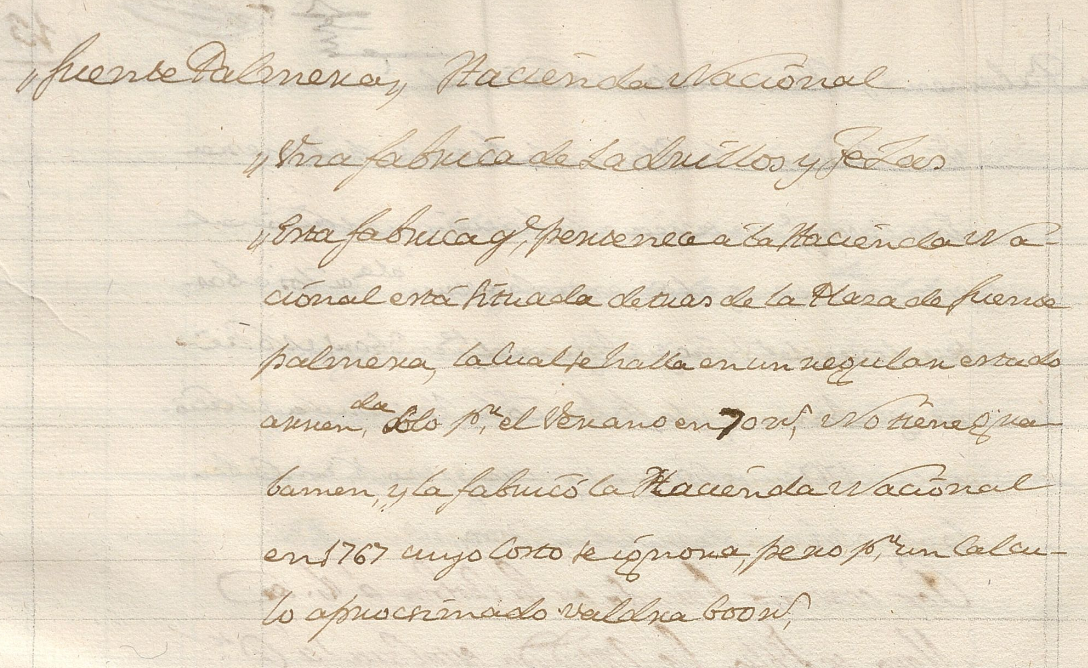 "fuente Palmera" Hacienda Nacional
"Una fabrica de Ladrillos y Tejas
"Esta fabrica qe. pertenece á la Hacienda Na-
cional está situada detras de la Plaza de fuente
palmera, la cual se halla en un regular estado
arrenda. Solo pr. el Verano en 70 rs. No tiene gra-
bamen, y la fabricó la Hacienda Nacional
en 1767 cuyo Costo se ignora, pero pr. un Calcu-
lo aprocsimado valdra 600 rs.